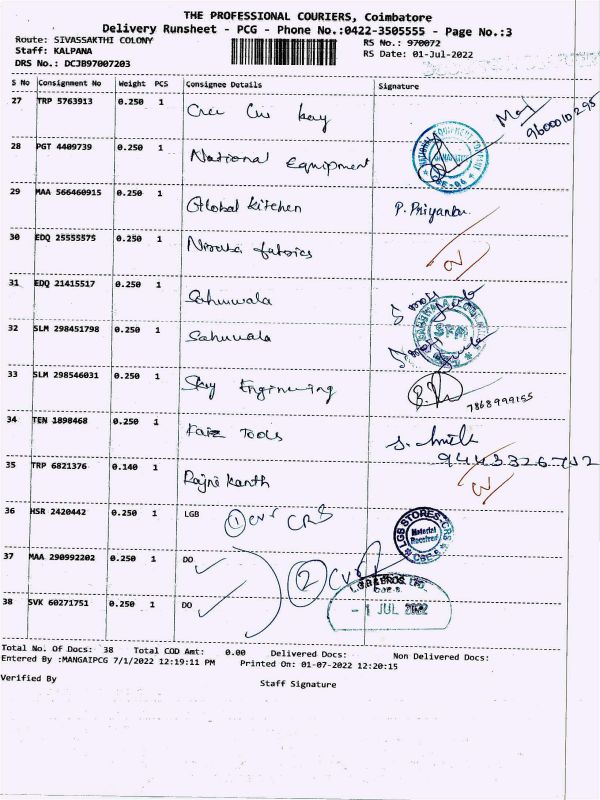 THE PROFESSIONAL COURIERS, Coimbatore
Delivery Runsheet - PCG - Phone No.:0422-3505555 - Page No.:3
Route: SIVASSAKTHI COLONY RS No.: 970072
Staff: KALPANA RS Date: 01-Jul-2022
DRS No.: DCJB97007203
S No Consignment No Weight PCS Consignee Details Signature
27 TRP 5763913 0.250 1
9600010295
28 PGT 4409739 0.250 1 National Equipment
29 MAA 566460915 0.250 1 Global Kitchen P. Priyanka
30 EDQ 25555575 0.250 1 Niruba fabrics
31 EDQ 21415517 0.250 1 Sahuwala
32 SLM 298451798 0.250 1 Sahuwala SFM
33 SLM 298546031 0.250 1 Sky Enginering 7868999155
34 TEN 1898468 0.250 1 Faiz Tools
35 TRP 6821376 0.140 1 Rajni Kanth
36 HSR 2420442 0.250 1 LGB 1 CVS CRS LGB STORES-CRS Material Received CBE-6
37 MAA 290992202 0.250 1 DO 2
38 SVK 60271751 0.250 1 DO - 1 JUL 2022
Total No. Of Docs: 38 Total COD Amt: 0.00 Delivered Docs: Non Delivered Docs:
Entered By :MANGAIPCG 7/1/2022 12:19:11 PM Printed On: 01-07-2022 12:20:15
Verified By Staff Signature